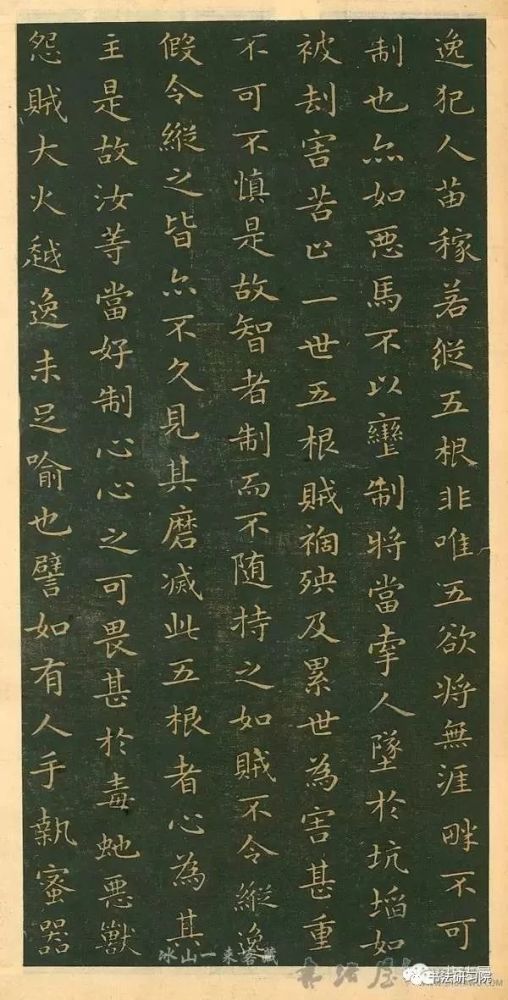 逸犯人苗稼若縱五根非唯五欲將無涯畔不可
制也亦如悪馬不以轡制將當牽人墜於坑埳如
被刦害苦止一世五根賊禍殃及累世為害甚重
不可不慎是故智者制而不随持之如賊不令縱逸
假令縱之皆亦不久見其磨滅此五根者心為其
主是故汝等當好制心心之可畏甚於毒虵悪獸
怨賊大火越逸未足喻也譬如有人手執蜜器
冰山一来客藏
书法研习院